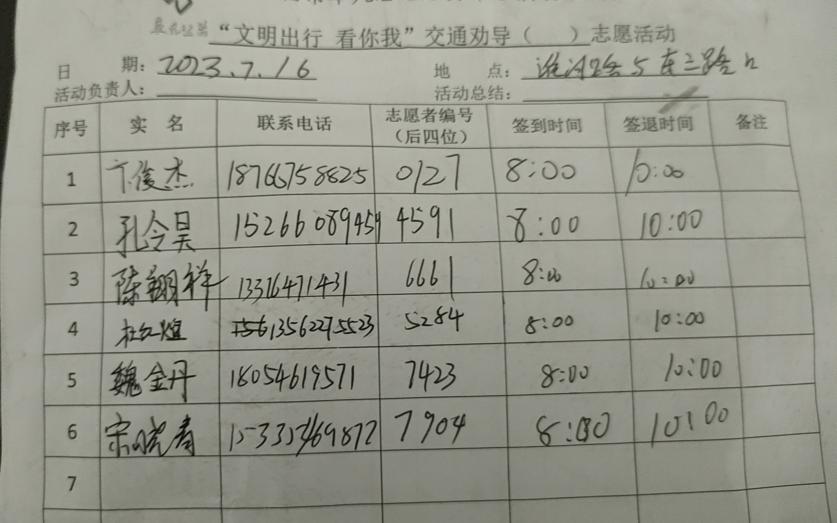 “文明出行 看你我”交通劝导（ ）志愿活动
日 期：2023.7.16 地 点：淮河路与东三路口
活动负责人： 活动总结：
序号 实 名 联系电话 志愿者编号（后四位） 签到时间 签退时间 备注
1 卞俊杰 18766758825 0127 8:00 10:00
2 孔令昊 15266089459 4591 8:00 10:00
3 陈翔祥 13316471431 6661 8:00 10:00
4 杜红煊 13562275523 5284 8:00 10:00
5 魏金丹 18054619571 7423 8:00 10:00
6 宋晓青 7904 8:00 10:00
7